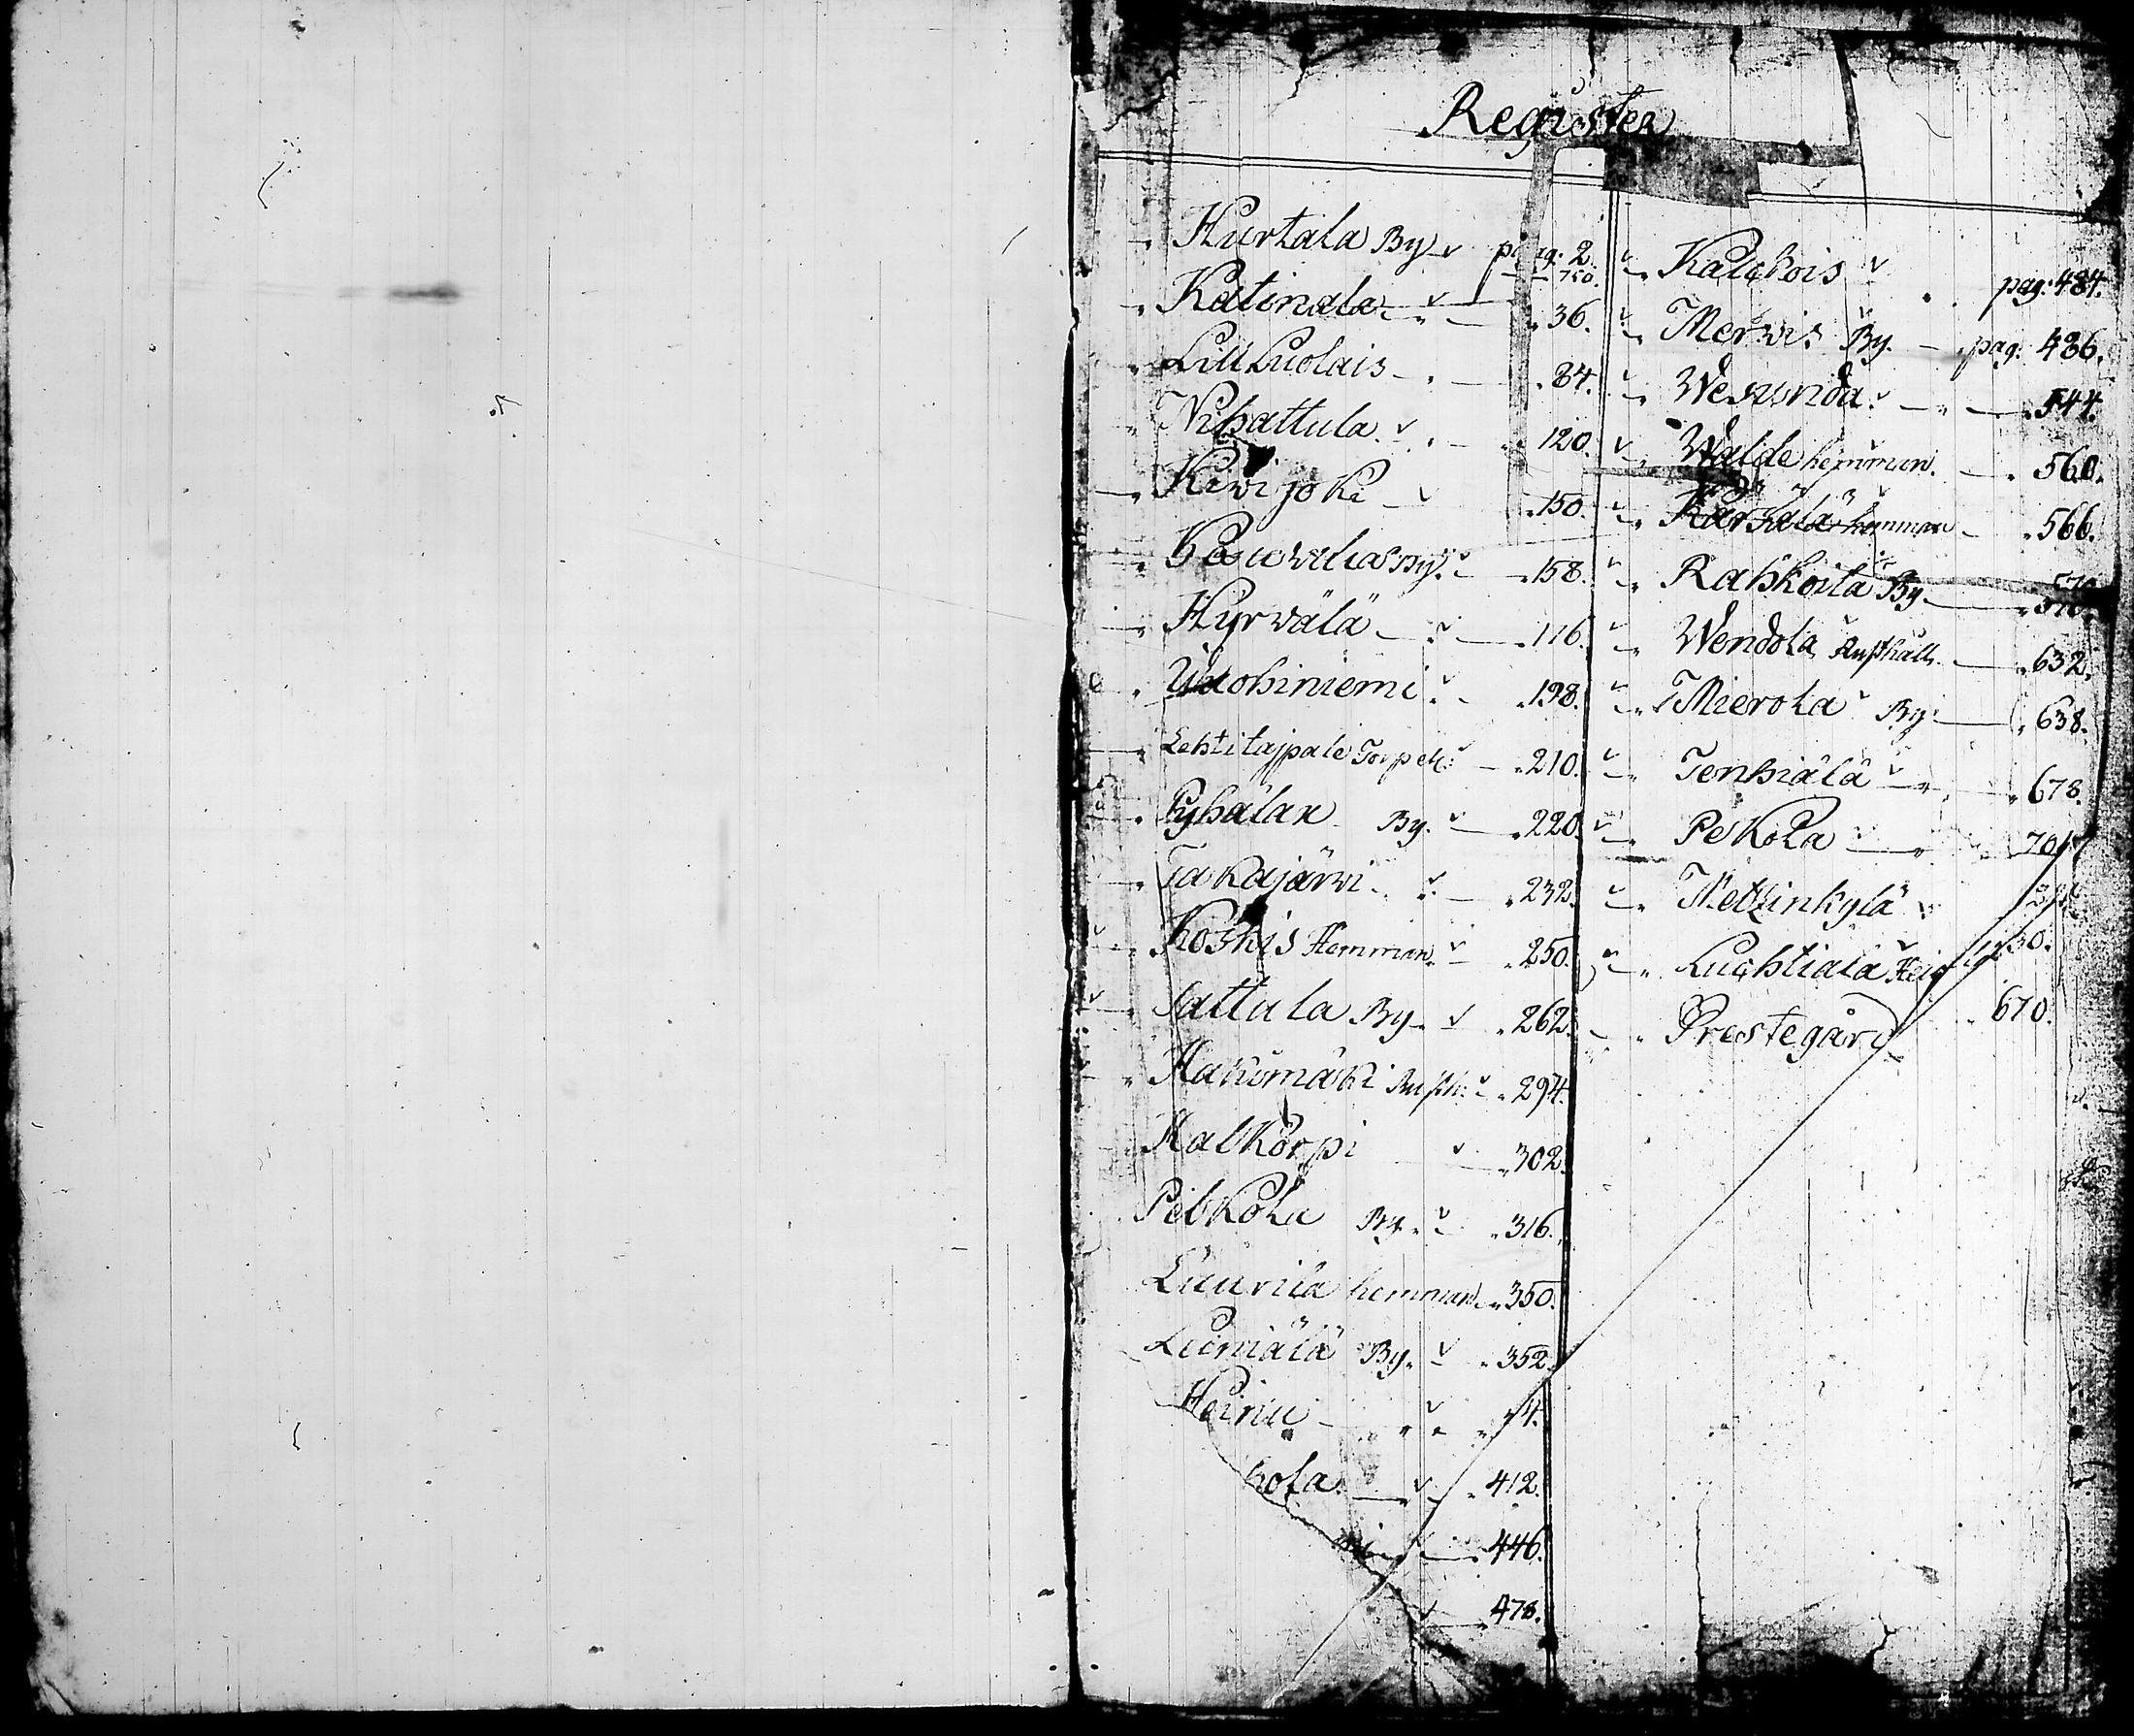 Register
Hurtala By pag: 2.
750.
Katinala 36.
Lill Luolais 84.
Nihattula 120.
Kiwijoki 150.
By. 158.
Hyrwälä 176.
Wuohiniemi 198.
Lehtitajpale Torpet: 210.
Pyhälax By. 220.
Takajärwi 232.
Koskis Hemman 250.
Sattula By 262.
Hakumäki Rusth: 294.
Halkorpi 302.
Pelkola By. 316.
Luuria hemman 350.
Lumiälä By. 352.
Heinu 4.
hola 412.
446.
478.
Kalckois pag: 484.
Merwis By. pag: 486.
Wesunda 544.
Walde hemman. 560.
Karhala hemman 566.
Rahkoila By 570.
Wendola Rusthåll. 632.
Mierola By 638.
Tenhiälä 678.
Pekola 704
Mettinkylä
Luchtiala 730.
Prestegård 670.